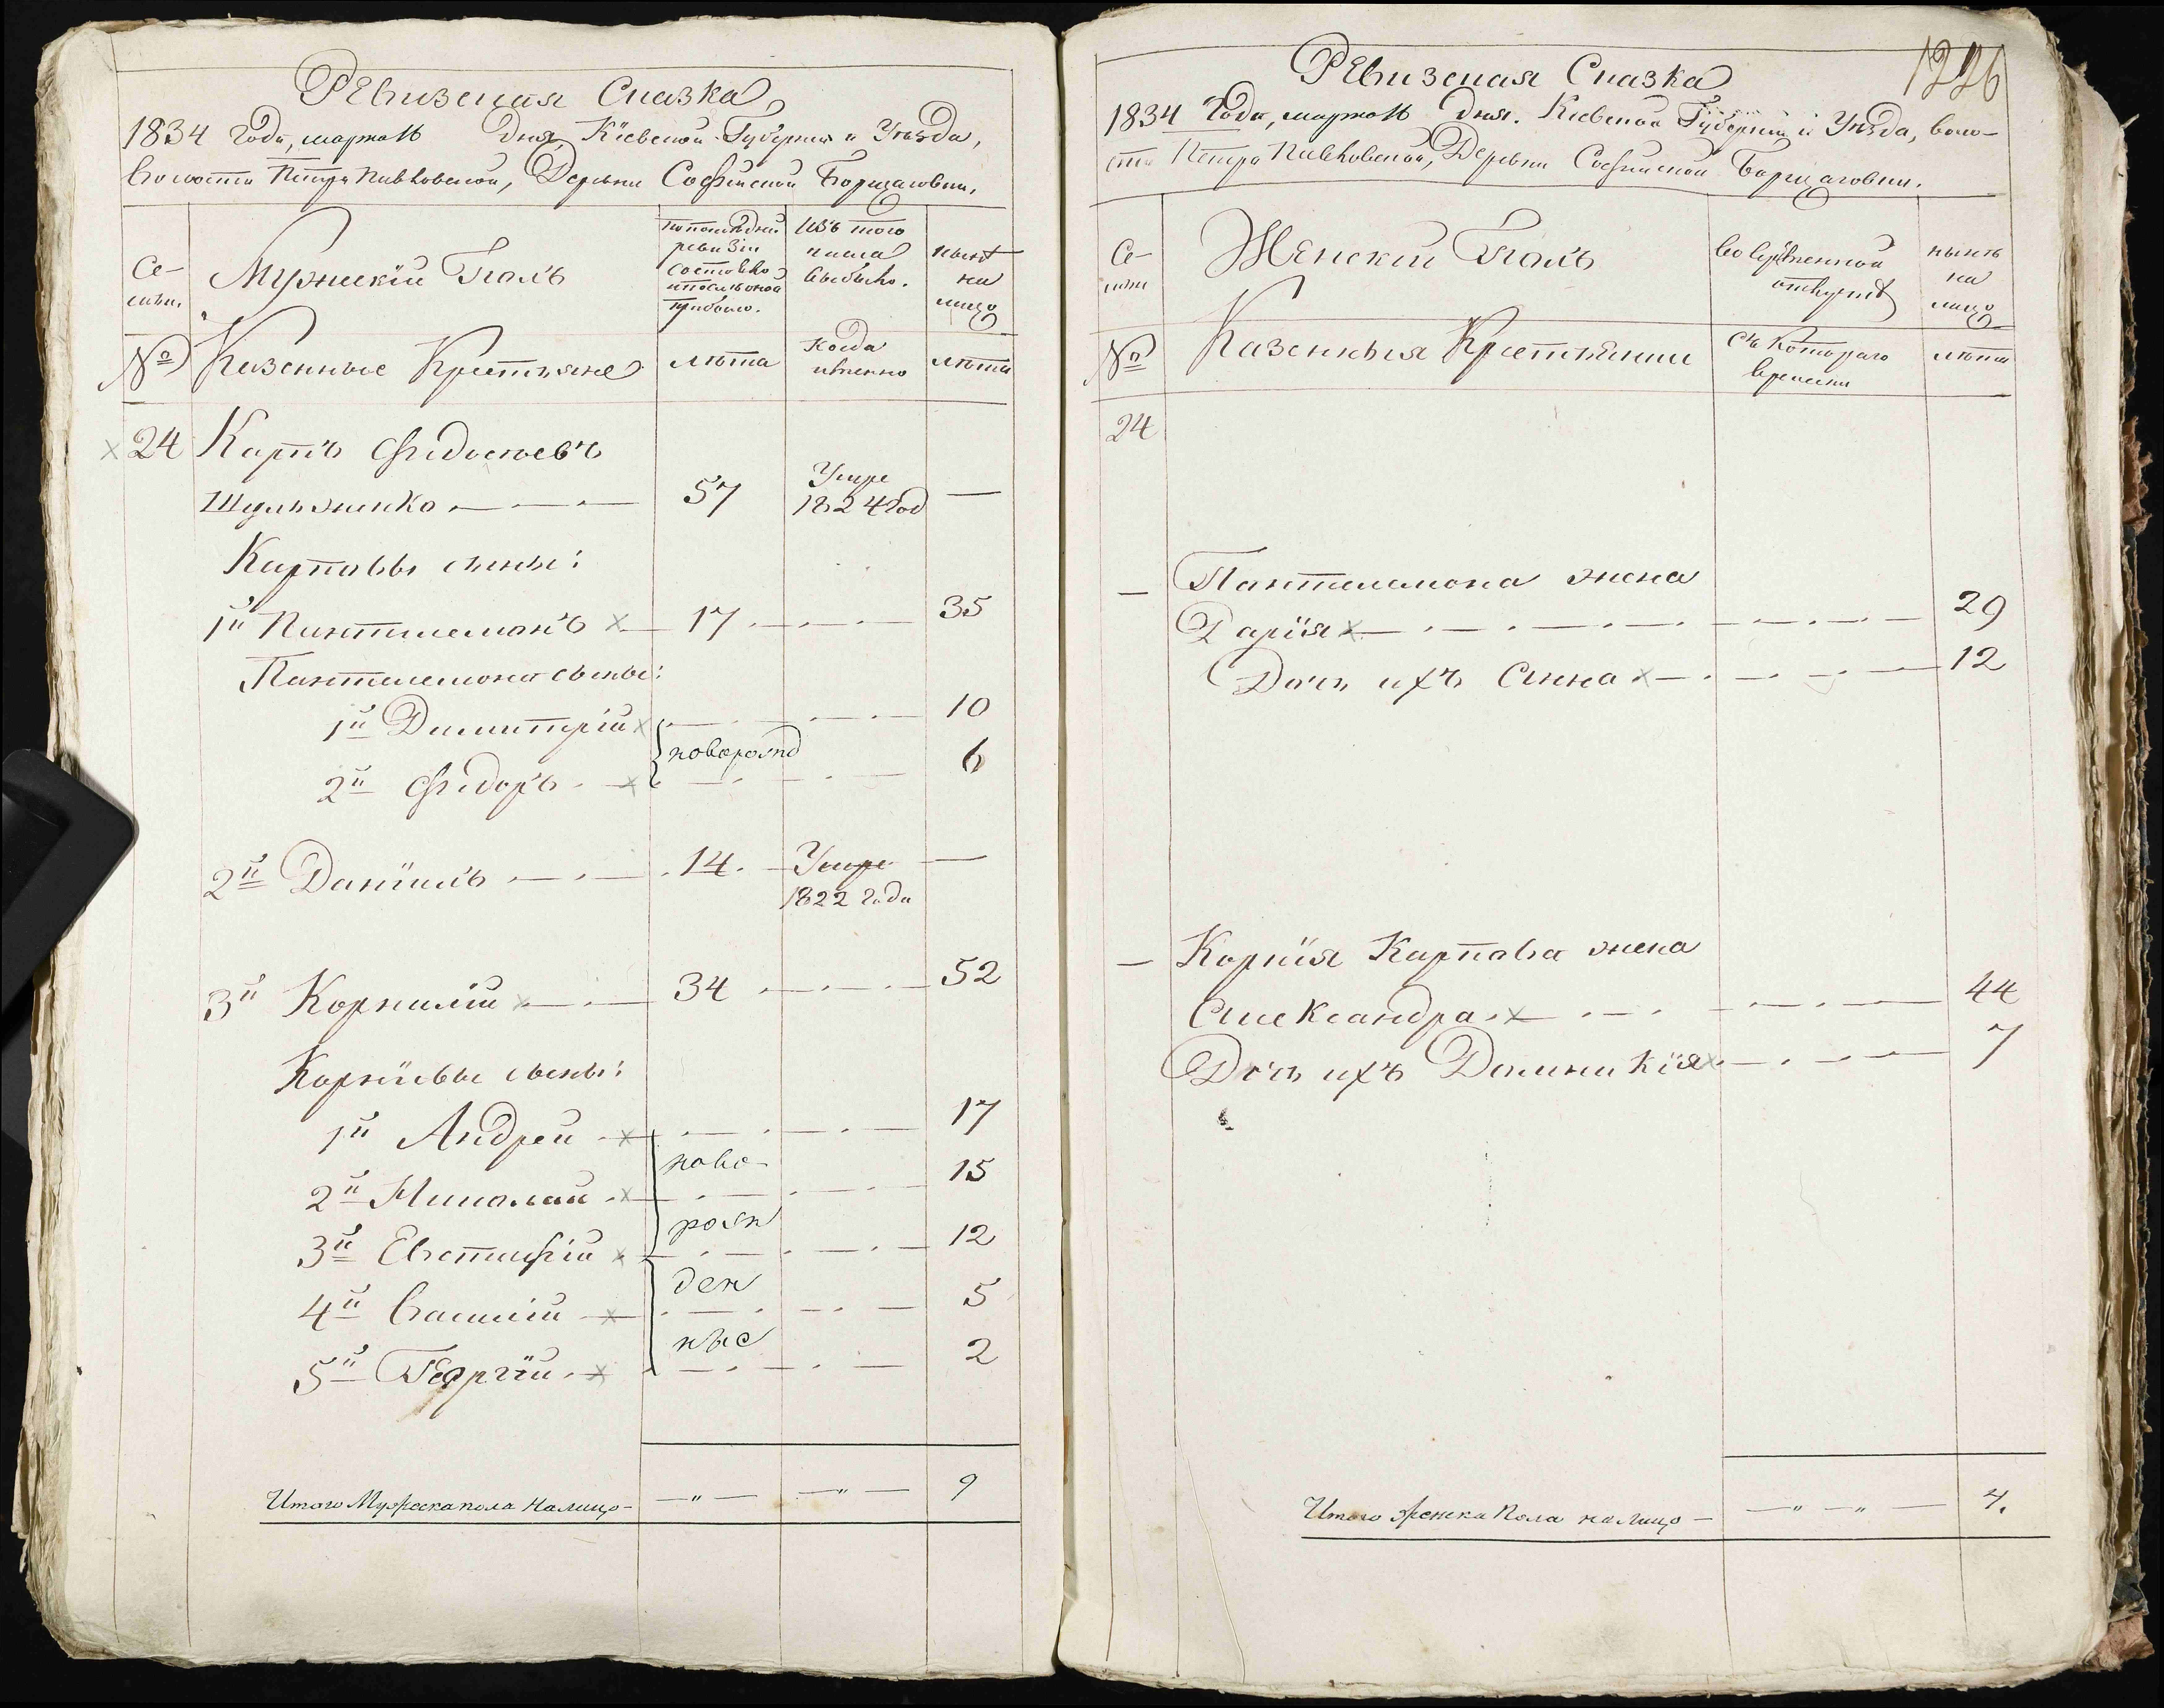 Ревизская Сказка
1834 года, марта 16 дня, Кіевской Губерніи и Уѣзда,
волости Петро Павловской, Деревни Софійской Борщаговки,
Се-
мьи.
Мужескій Полъ
По последней
ревизіи
состояло
и после оной
прибыло.
Изъ того
числа
выбыло.
нынѣ
на
лицо
№
Казенные Крестьяне
лѣта
Когда
именно
лѣта
24 Карпъ Федосѣевъ
Шульженко 57 Умре 1824 год —
Карповы сыны:
1й Пантелемонъ 17 35
Пантелемона сыны:
1й Димитрій 10
новорожд
2й Федоръ 6
2й Даніилъ 14. Умре —
1822 года
3й Корнилій 34 52
Корніевы сыны:
1й Андрей 17
ново-
2й Николай 15
рож
3й Евстафій 12
ден
4й Василій 5
ныє
5й Георгій 2
Итого Мужеска пола налицо — " — — " — 9
1226
Ревизская Сказка
1834 года, марта 16 дня. Кіевской Губерніи и Уѣзда, воло-
сти Петро Павловской, Деревни Софийской Борщаговки.
Се-
мьи
Женскій Полъ
во временной
отлучкѣ
нынѣ
на
лицо
№
Казенныя Крестьянки
Съ Котораго
времени
лѣта
24
— Пантелемона жена
Дарія 29
Дочь ихъ Анна 12
— Корнія Карпова жена
Александра 44
Дочь ихъ Доминикія 7
Итого женска Пола на лицо — " — " — 4.